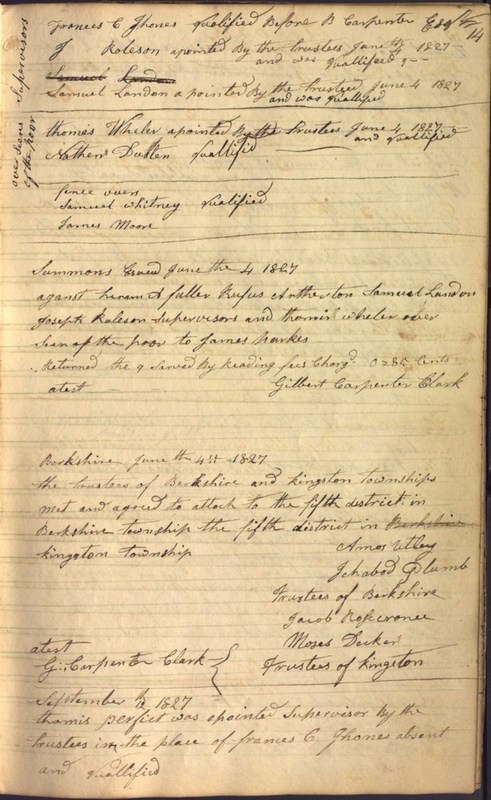 Supervisors
14
Frances C Jhones Qualified Before B Carpenter Esq
J Roleson apointed By the trustees June 4th 1827
and was quallifeed
Samuel Landon
Samuel Landon apointed By the trusteed June 4 1827
and was quallifid
over seers of the poor
thomes Wheler apointed By the trustees June 4 1827
and Quallified
Nathen Dusten Quallifid
fence vuers
Samuel Whitney Qualified
James Moore
Summons Isued June the 4 1827
aganst hiram A fuller Rufus Antherton Samuel Landon
Joseph Roleson Supervisors and thomis wheler over
Sear of the poor to James parkes
Returned the 9 Served By Reading fees Charg'd 0=85 Cents
atest Gilbert Carpenter Clark
Berkshire June th 4th 1827
the trustees of Berkshire and kingston townships
met and agreed to attach to the fifth district in
Berkshire township the fifth district in Berkshire
kingston township
Amos Utley
Ichabod Plumb
Trustees of Berkshire
Jacob Rosecrance
Moses Decker
Trustees of kingston
atest
G. Carpenter Clark
September 1827
thomis perfict was apointed Supervisor By the
trustees in the place of frames C Jhones absent
and Quallified